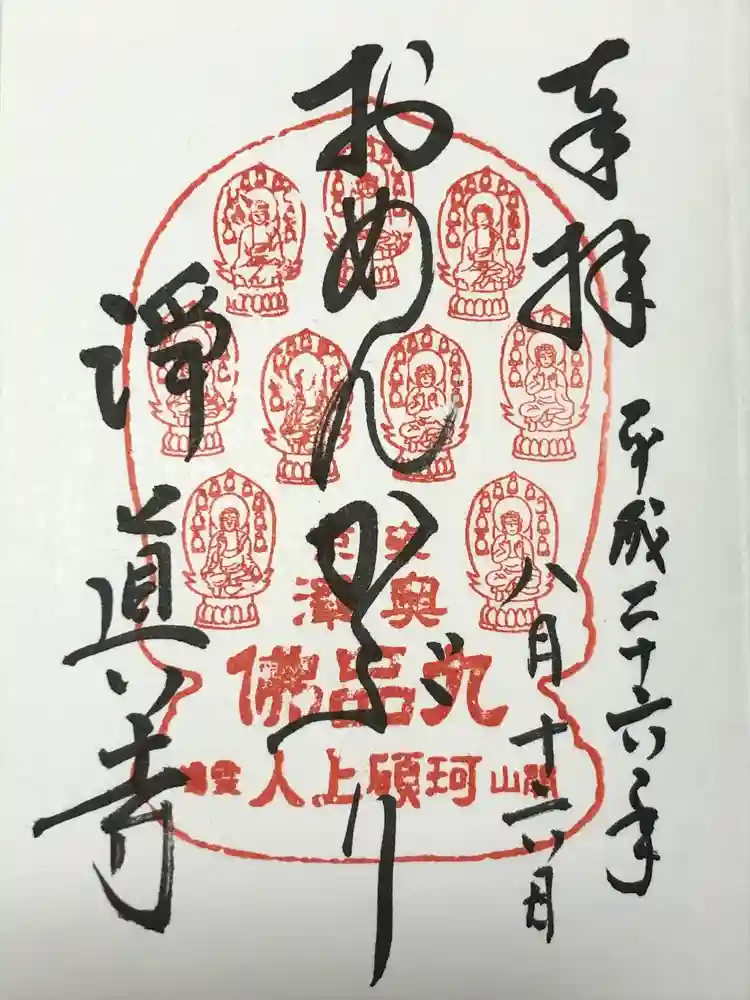 奉拝
平成二十六年
八月十六日
おめんかぶり
淨眞寺
奥澤
九品佛
開山珂碩上人